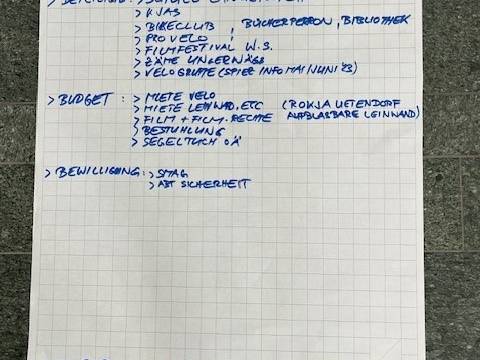 > KJAS
> BIKECLUB, BÜCHERPERRON, BIBLIOTHEK
> PRO VELO
> FILMFESTIVAL W.S.
> ZÄME UNGERWÄGS
> VELOGRUPPE (SPIEZ INFO MAI/JUNI
> BUDGET : > MIETE VELO
> MIETE LEINWAD, ETC (ROKJA UETENDORF
> FILM + FILM-RECHTE AUFBLASBARE LEINWAND)
> BESTUHLUNG
> SEGELTUCH O.Ä
> BEWILLIGUNG : > SMAG
> ABT SICHERHEIT